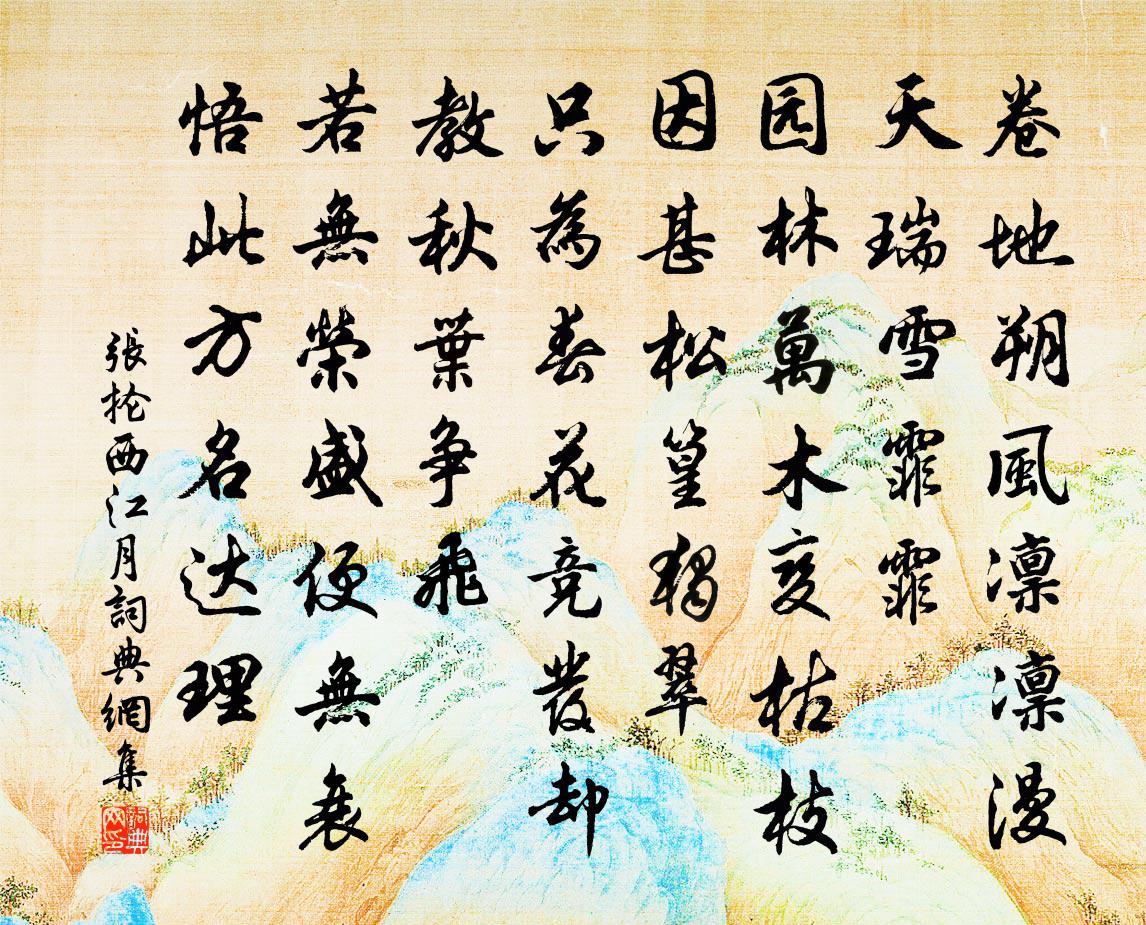 卷地朔風凛凛漫
天瑞雪霏霏
园林萬木变枯枝
因甚松篁獨翠
只為春花竞發却
教秋葉争飛
若無榮盛便無衰
悟此方名达理
張抡西江月詞典網集